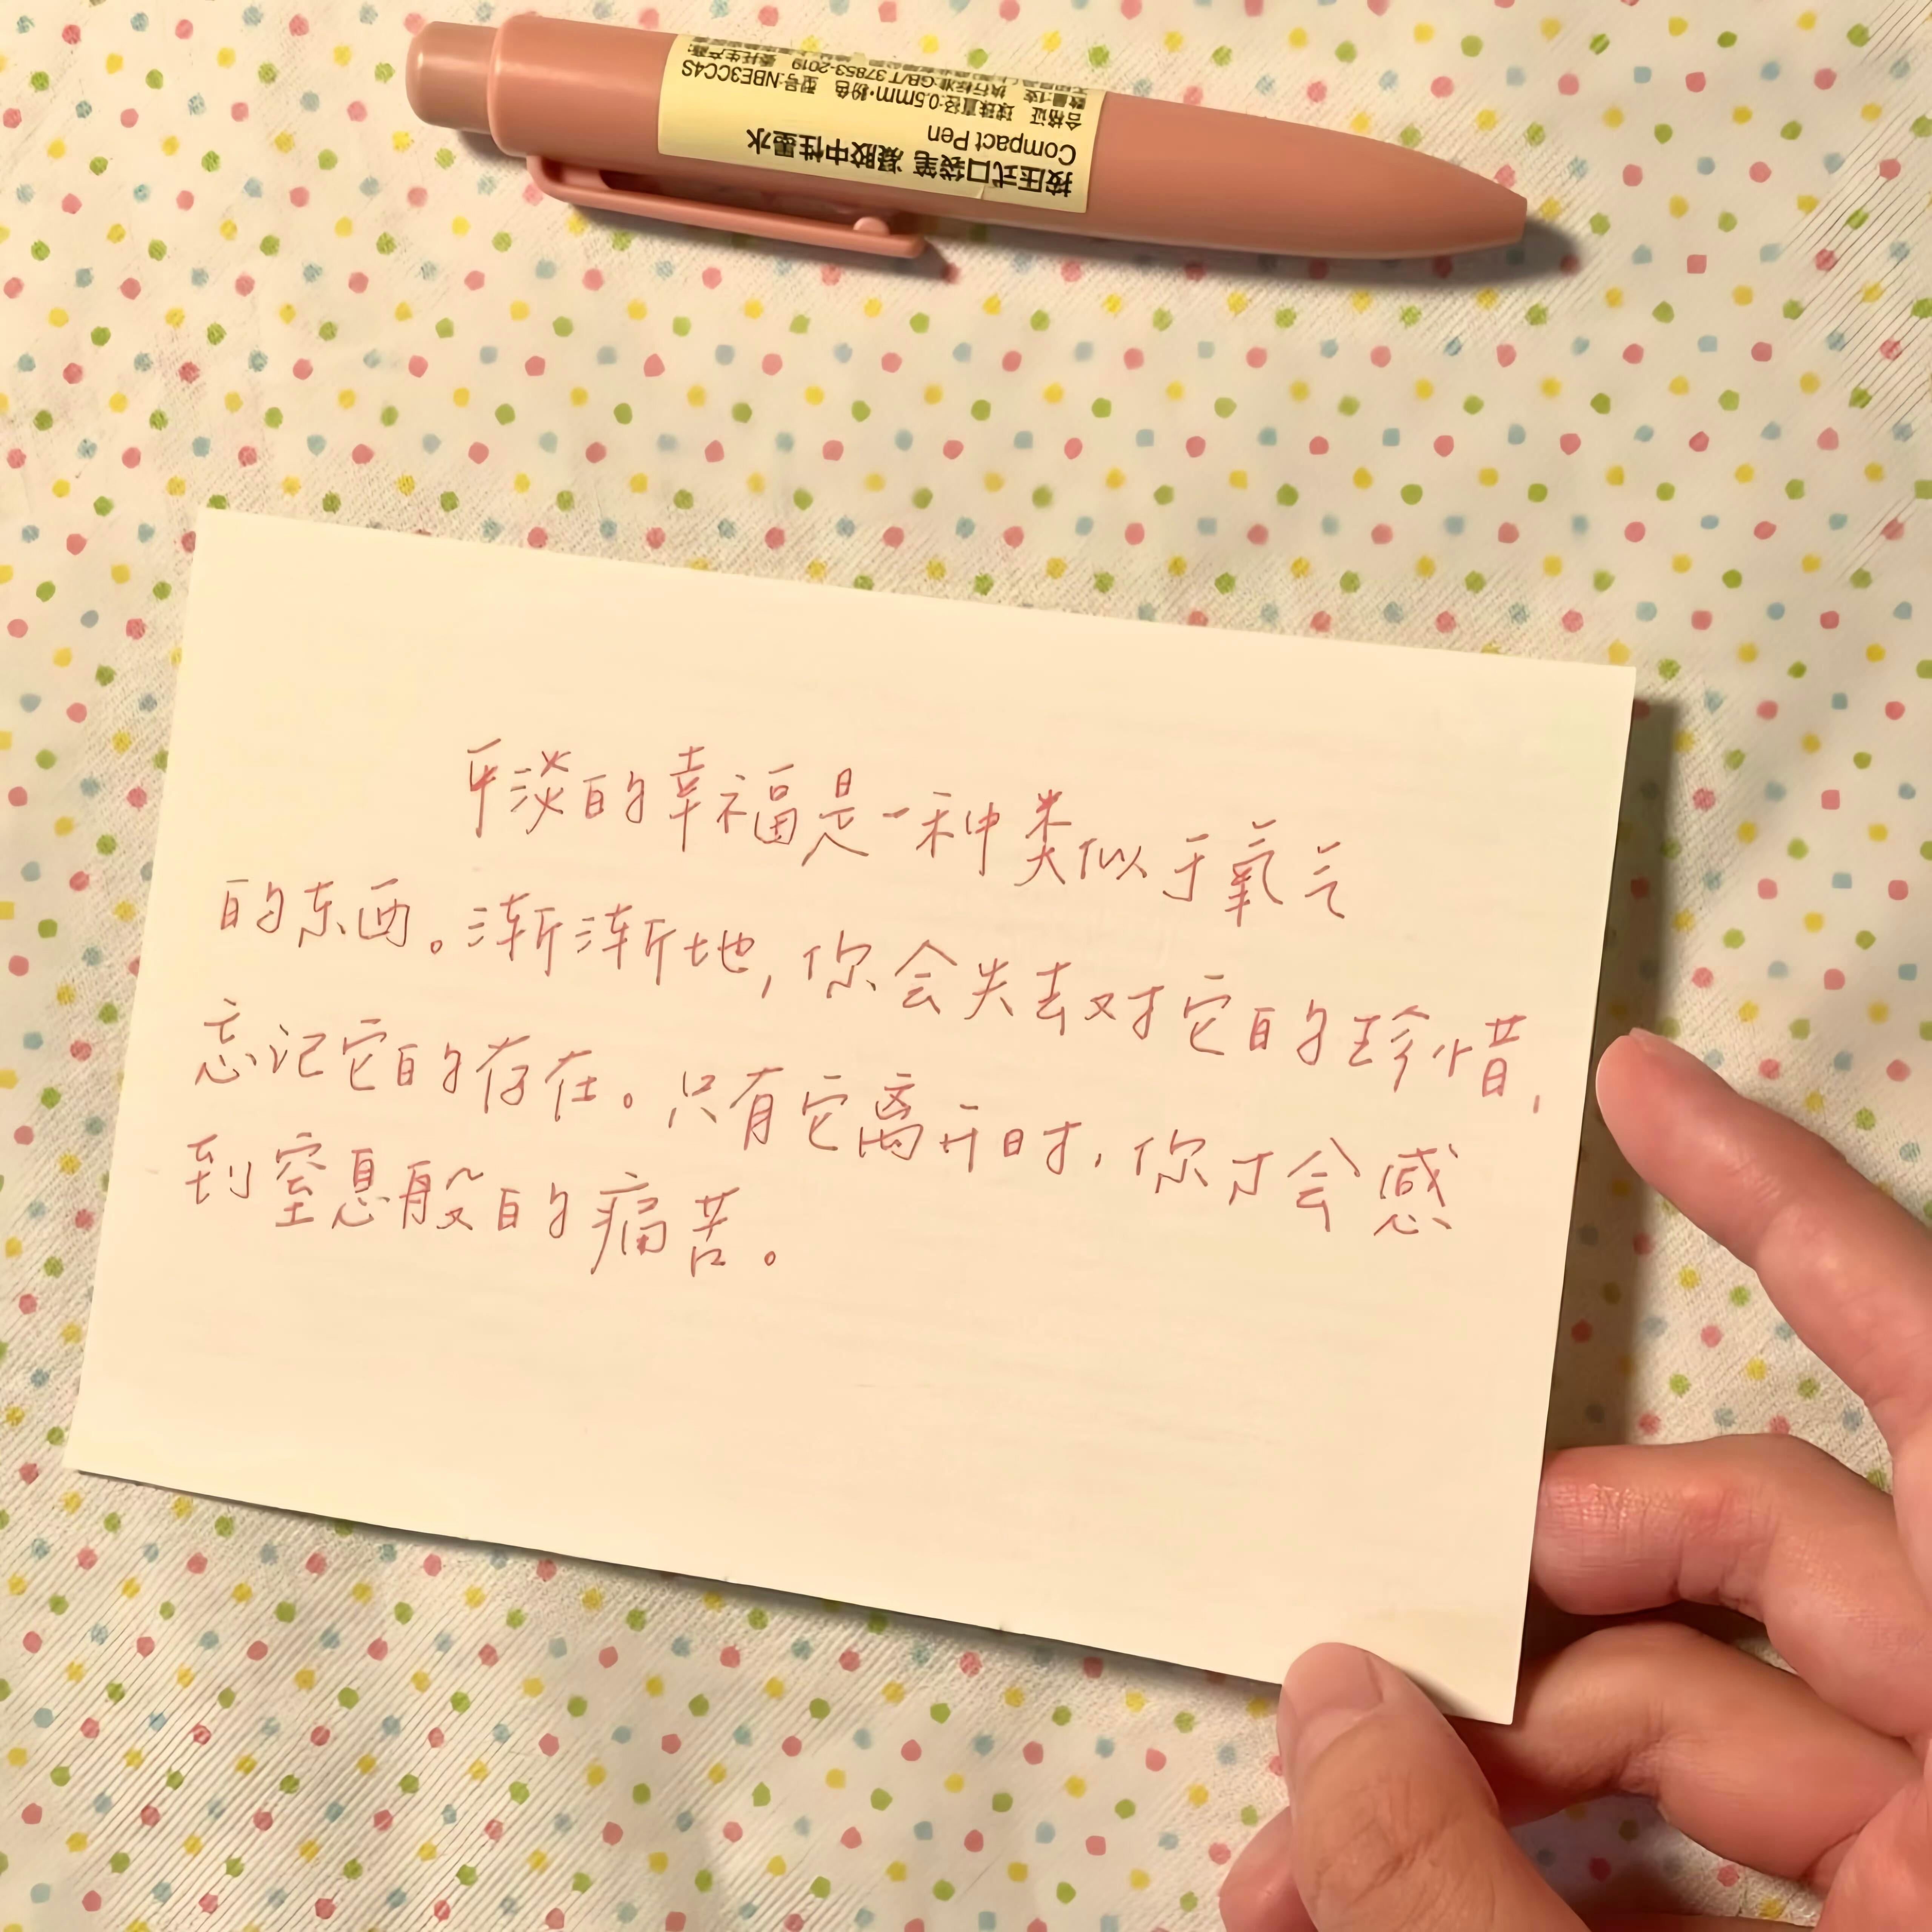 按压式口袋笔 凝胶中性墨水
Compact Pen
合格证 球珠直径:0.5mm·粉色 型号:NBE3CC4S
数量:1支 执行标准:GB/T 37853-2019 委托生产商:
平淡的幸福是一种类似于氧气
的东西。渐渐地,你会失去对它的珍惜,
忘记它的存在。只有它离开时,你才会感
到窒息般的痛苦。